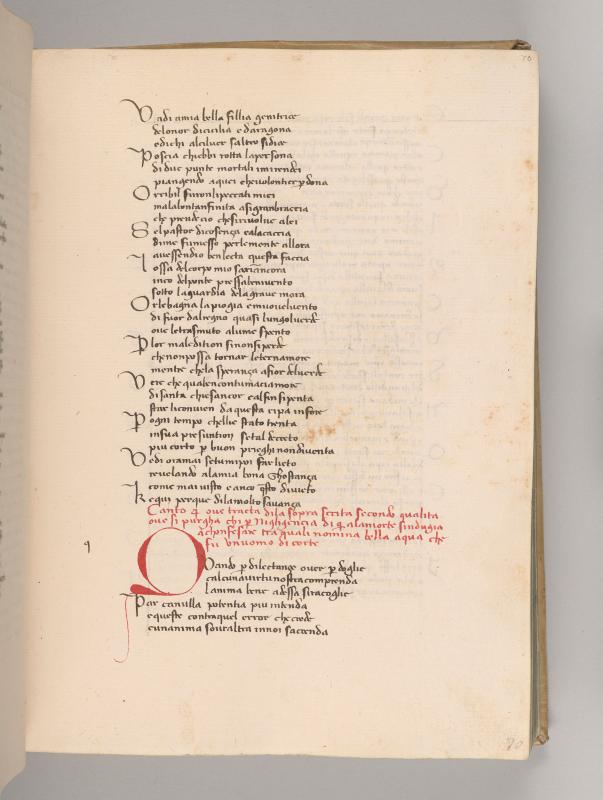 70
Vadi amia bella fillia genitrice
delonor dicicilia e daragona
edichi alei lver saltro sidice
Poscia chiebbi rotta lapersona
di due punte mortali imirendei
piangendo aquei chevolontier pdona
Oribil furon lipeccati miei
malabontanfinita asi granbraccia
che prende cio chesirivolve alei
Sel pastor di cosenza calacaccia
dime fumesso perlemente allora
avessendio ben lecta questa faccia
Iossa delcorpo mio sarian ancora
inco delponte pressabenivento
sotto laguardia dela grave mora
Orlebagna lapiogia emuovelvento
di fuor dalregno quasi lungolverde
ove letrasmuto alume spento
Plor maledition sinonsiperde
chenonpossa tornar leternamore
mentre chela speranza afior delverde
Vere che qualencontumaciamore
disanta chiesancor calfin sipenta
star liconvien da questa ripa infore
Pogni tempo chellie stato trenta
insua presuntion setal decreto
piu corto p buon prieghi nondiventa
Vedi oramai setumipoi far lieto
revelando alamia bona Ghostanza
come mai visto e anco qsto divieto
Kequi perque dilamolto savanza
Canto 4 ove tracta dila sopra scrita secondo qualita
ove si purgha chi p Nigligencia di qi alamorte sindugia
aconfesare tra quali nomina bella aqua che
fu unuomo di corte
q
Quando p dilectanze over p doglie
calcuna virtu nostra comprenda
lanima bene adessa siracoglie
Par canulla potentia piu intenda
equeste contraquel error che crede
cunanima sovraltra innoi sacenda
70